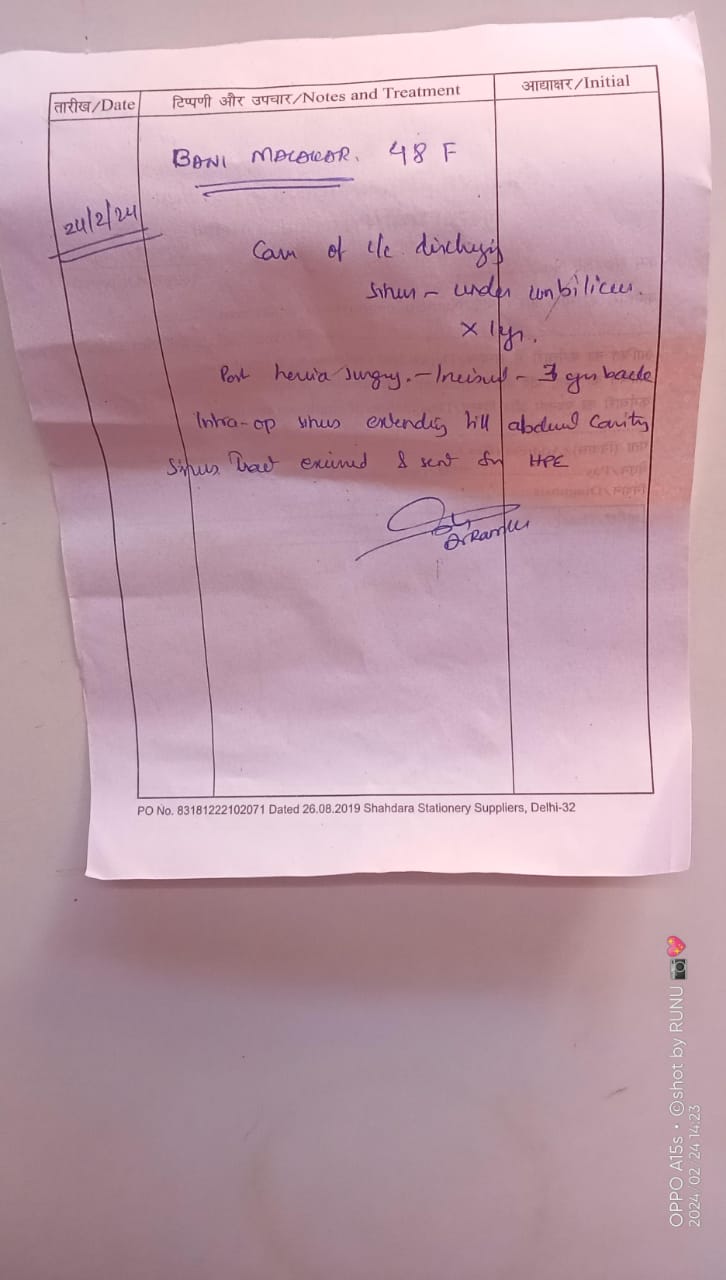 तारीख/Date टिप्पणी और उपचार/Notes and Treatment आद्याक्षर/Initial
BANI MALAKAR. 48 F
24/2/24
Case of c/c discharging
sinus – under umbilicus.
x 1yr.
Post hernia surgery. – Incisional – 3 yrs back
Intra-op sinus extending till abdominal cavity
Sinus Tract excised & sent for HPE
PO No. 83181222102071 Dated 26.08.2019 Shahdara Stationery Suppliers, Delhi-32
OPPO A15s • ©shot by RUNU 📷💖
2024. 02. 24 14:23